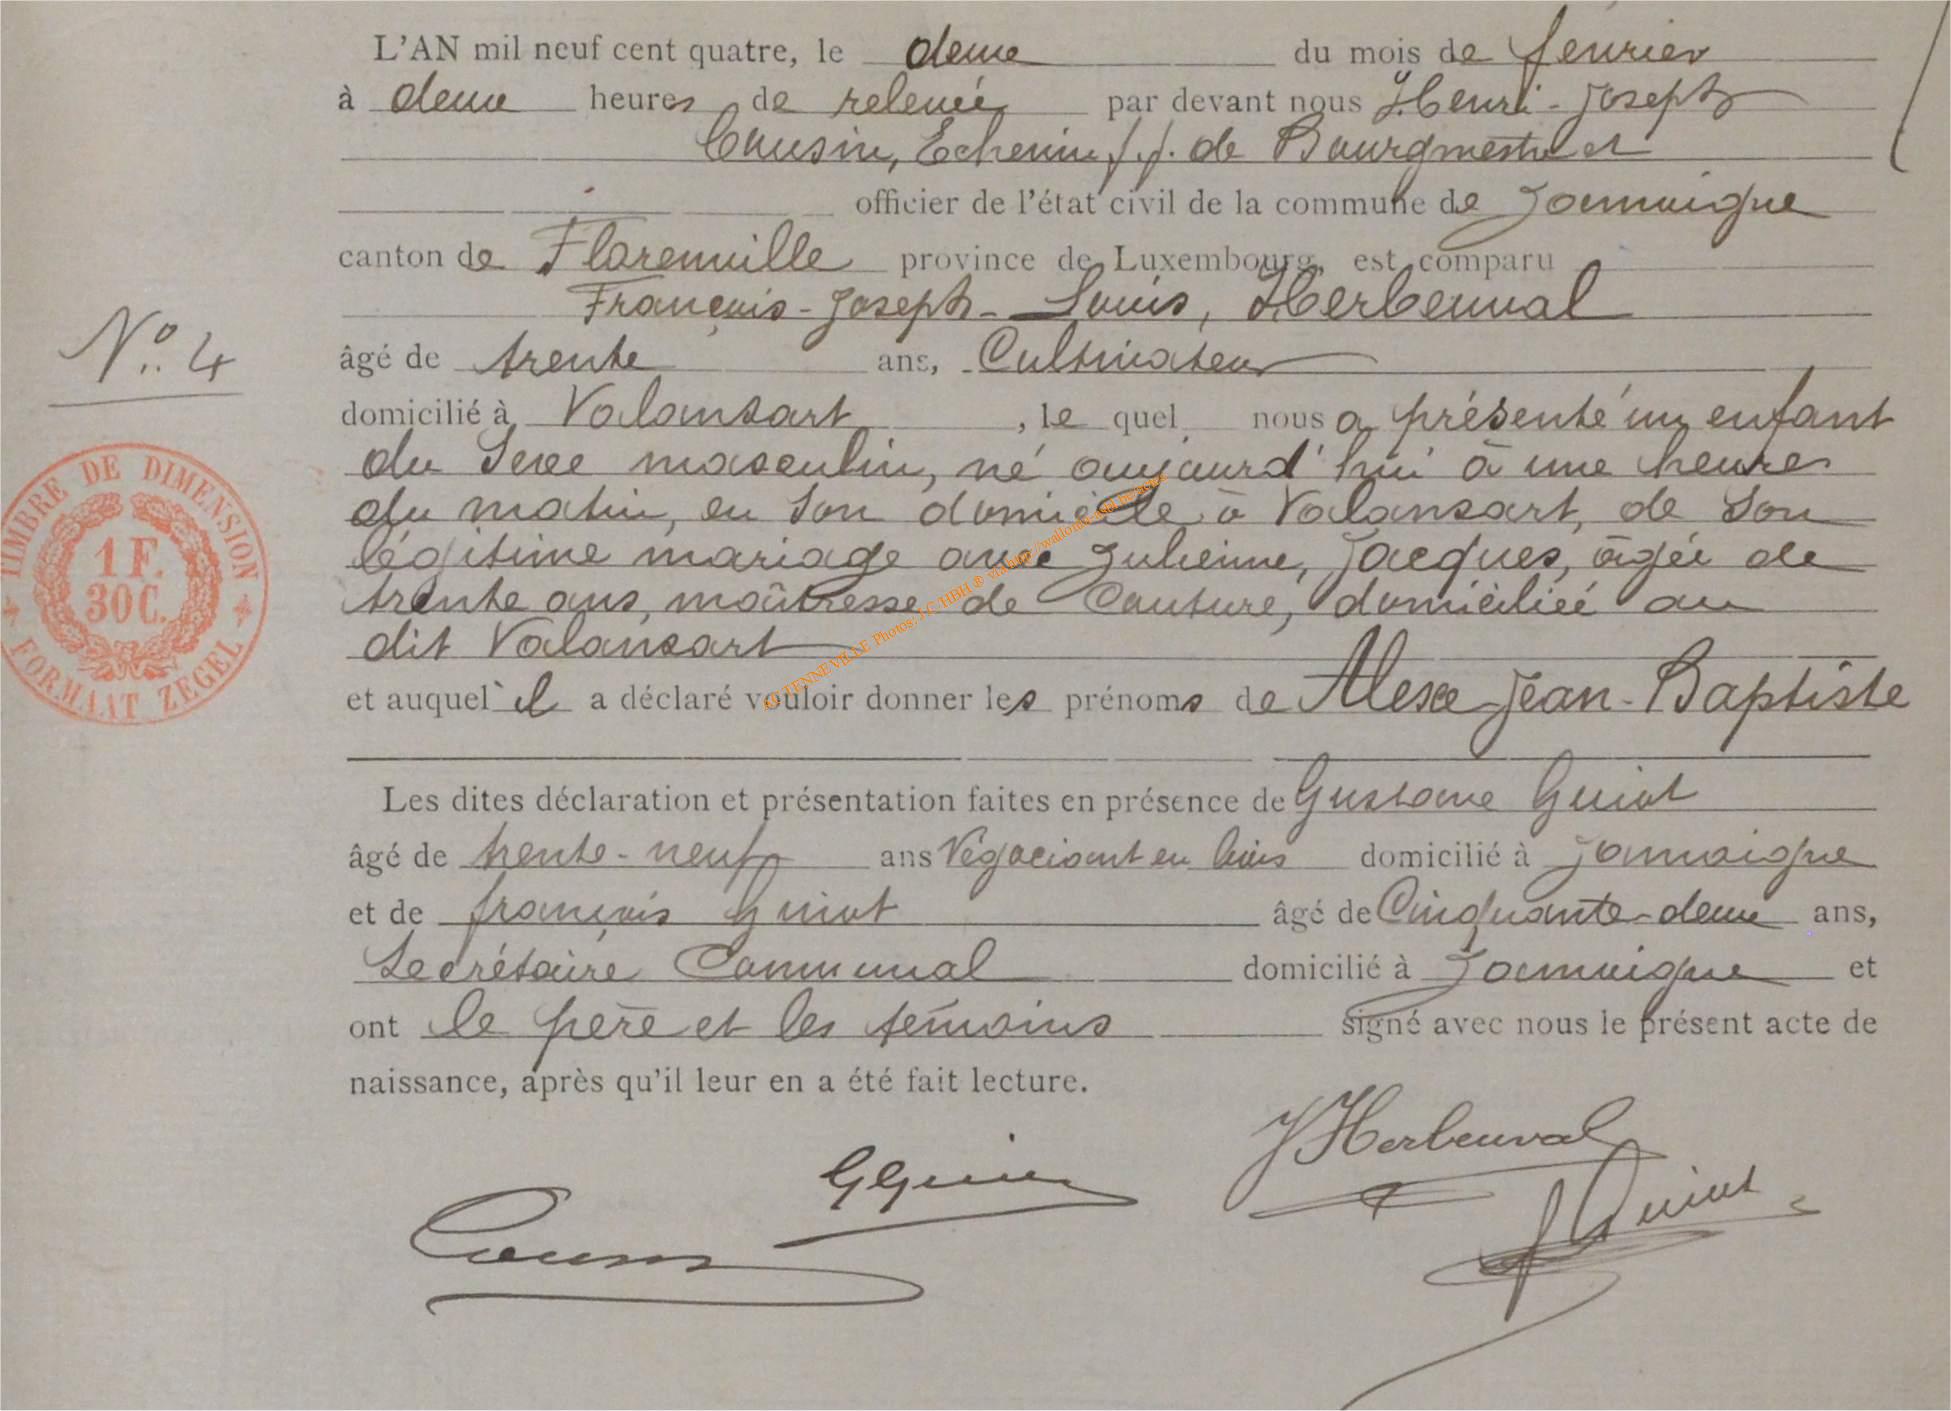 L'AN mil neuf cent quatre, le deux du mois de février
à deux heures de relevée par devant nous Henri-Joseph
Cousin, Echevin f.f. de Bourgmestre et
officier de l'état civil de la commune de Jamoigne
canton de Florenville province de Luxembourg, est comparu
François-Joseph-Louis, Herbeuval
Nº. 4
âgé de trente ans, Cultivateur
domicilié à Valansart, le quel nous a présenté un enfant
du Sexe masculin, né aujourd'hui à une heures
du matin, en son domicile à Valansart, de son
légitime mariage avec Julienne, Jacques, âgée de
trente ans, maîtresse de Couture, domiciliée au
dit Valansart
et auquel il a déclaré vouloir donner les prénoms de Alexe-Jean-Baptiste
TIMBRE DE DIMENSION
1 F.
30 C.
FORMAAT ZEGEL
TENNEVILLE Photos: J.C HBH ® via http://wallonia-asbl.be/actes
Les dites déclaration et présentation faites en présence de Gustave Guiot
âgé de trente-neuf ans Négociant en bois domicilié à Jamoigne
et de françois Guiot âgé de Cinquante-deux ans,
Secrétaire Communal domicilié à Jamoigne et
ont le père et les témoins signé avec nous le présent acte de
naissance, après qu'il leur en a été fait lecture.
J Herbeuval
GGuiot
f Guiot
Cousin